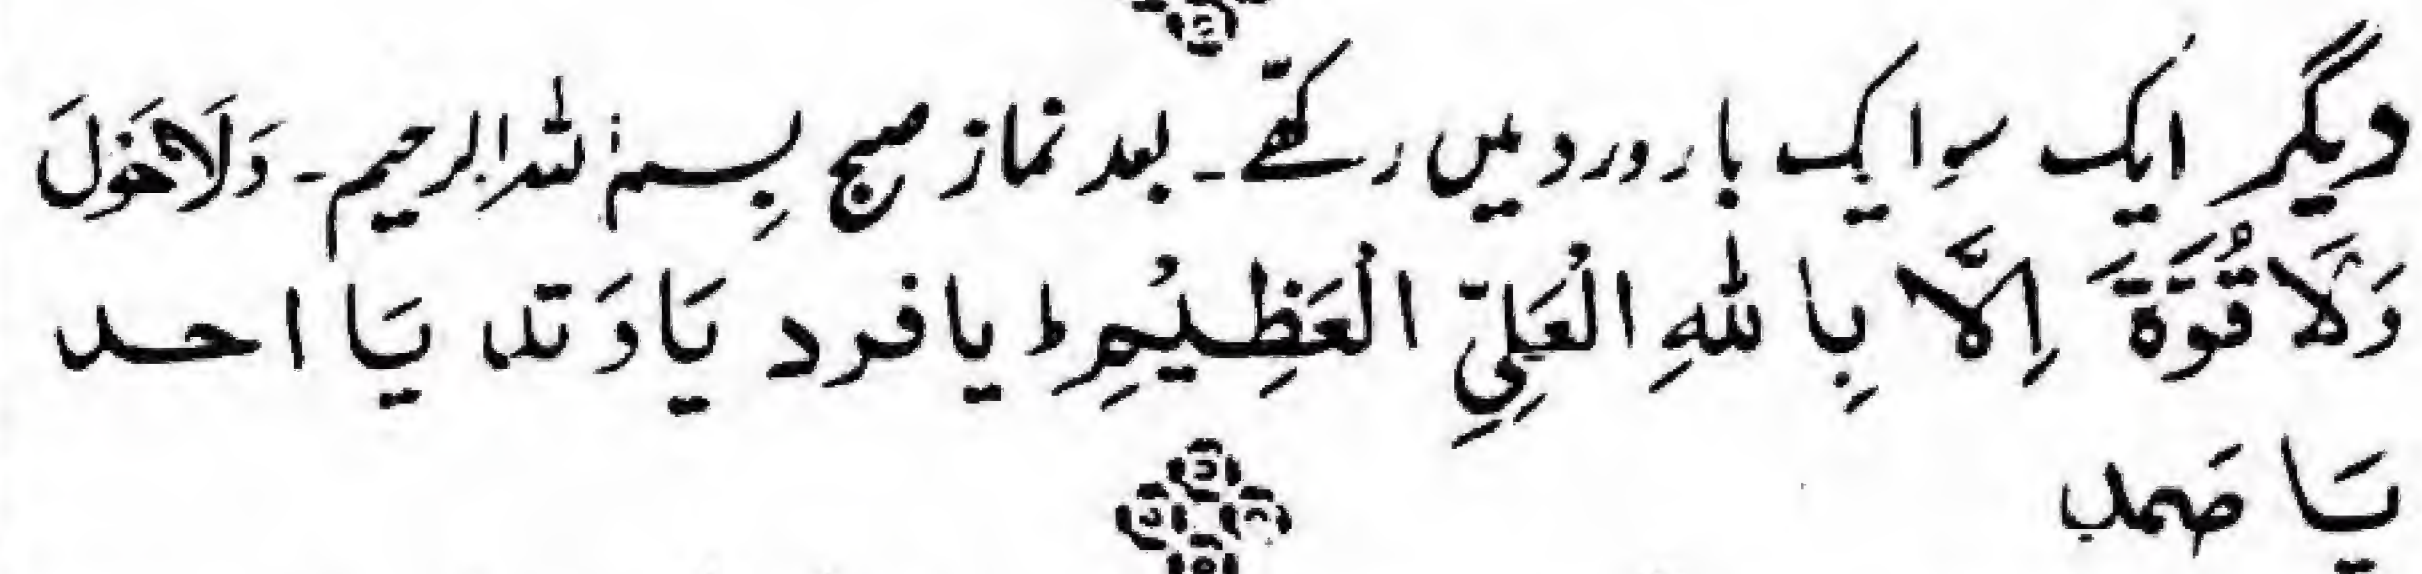 دیگر ایک سو ایک بار ورد میں رکھے۔ بعد نماز صبح بِسم اللہ الرحیم۔ وَلَا حَوْلَ
وَلَا قُوَّةَ اِلَّا بِاللهِ الْعَلِيِّ الْعَظِيْمِ ط یا فرد يَا وَتد يَا احد
يَا صَمد